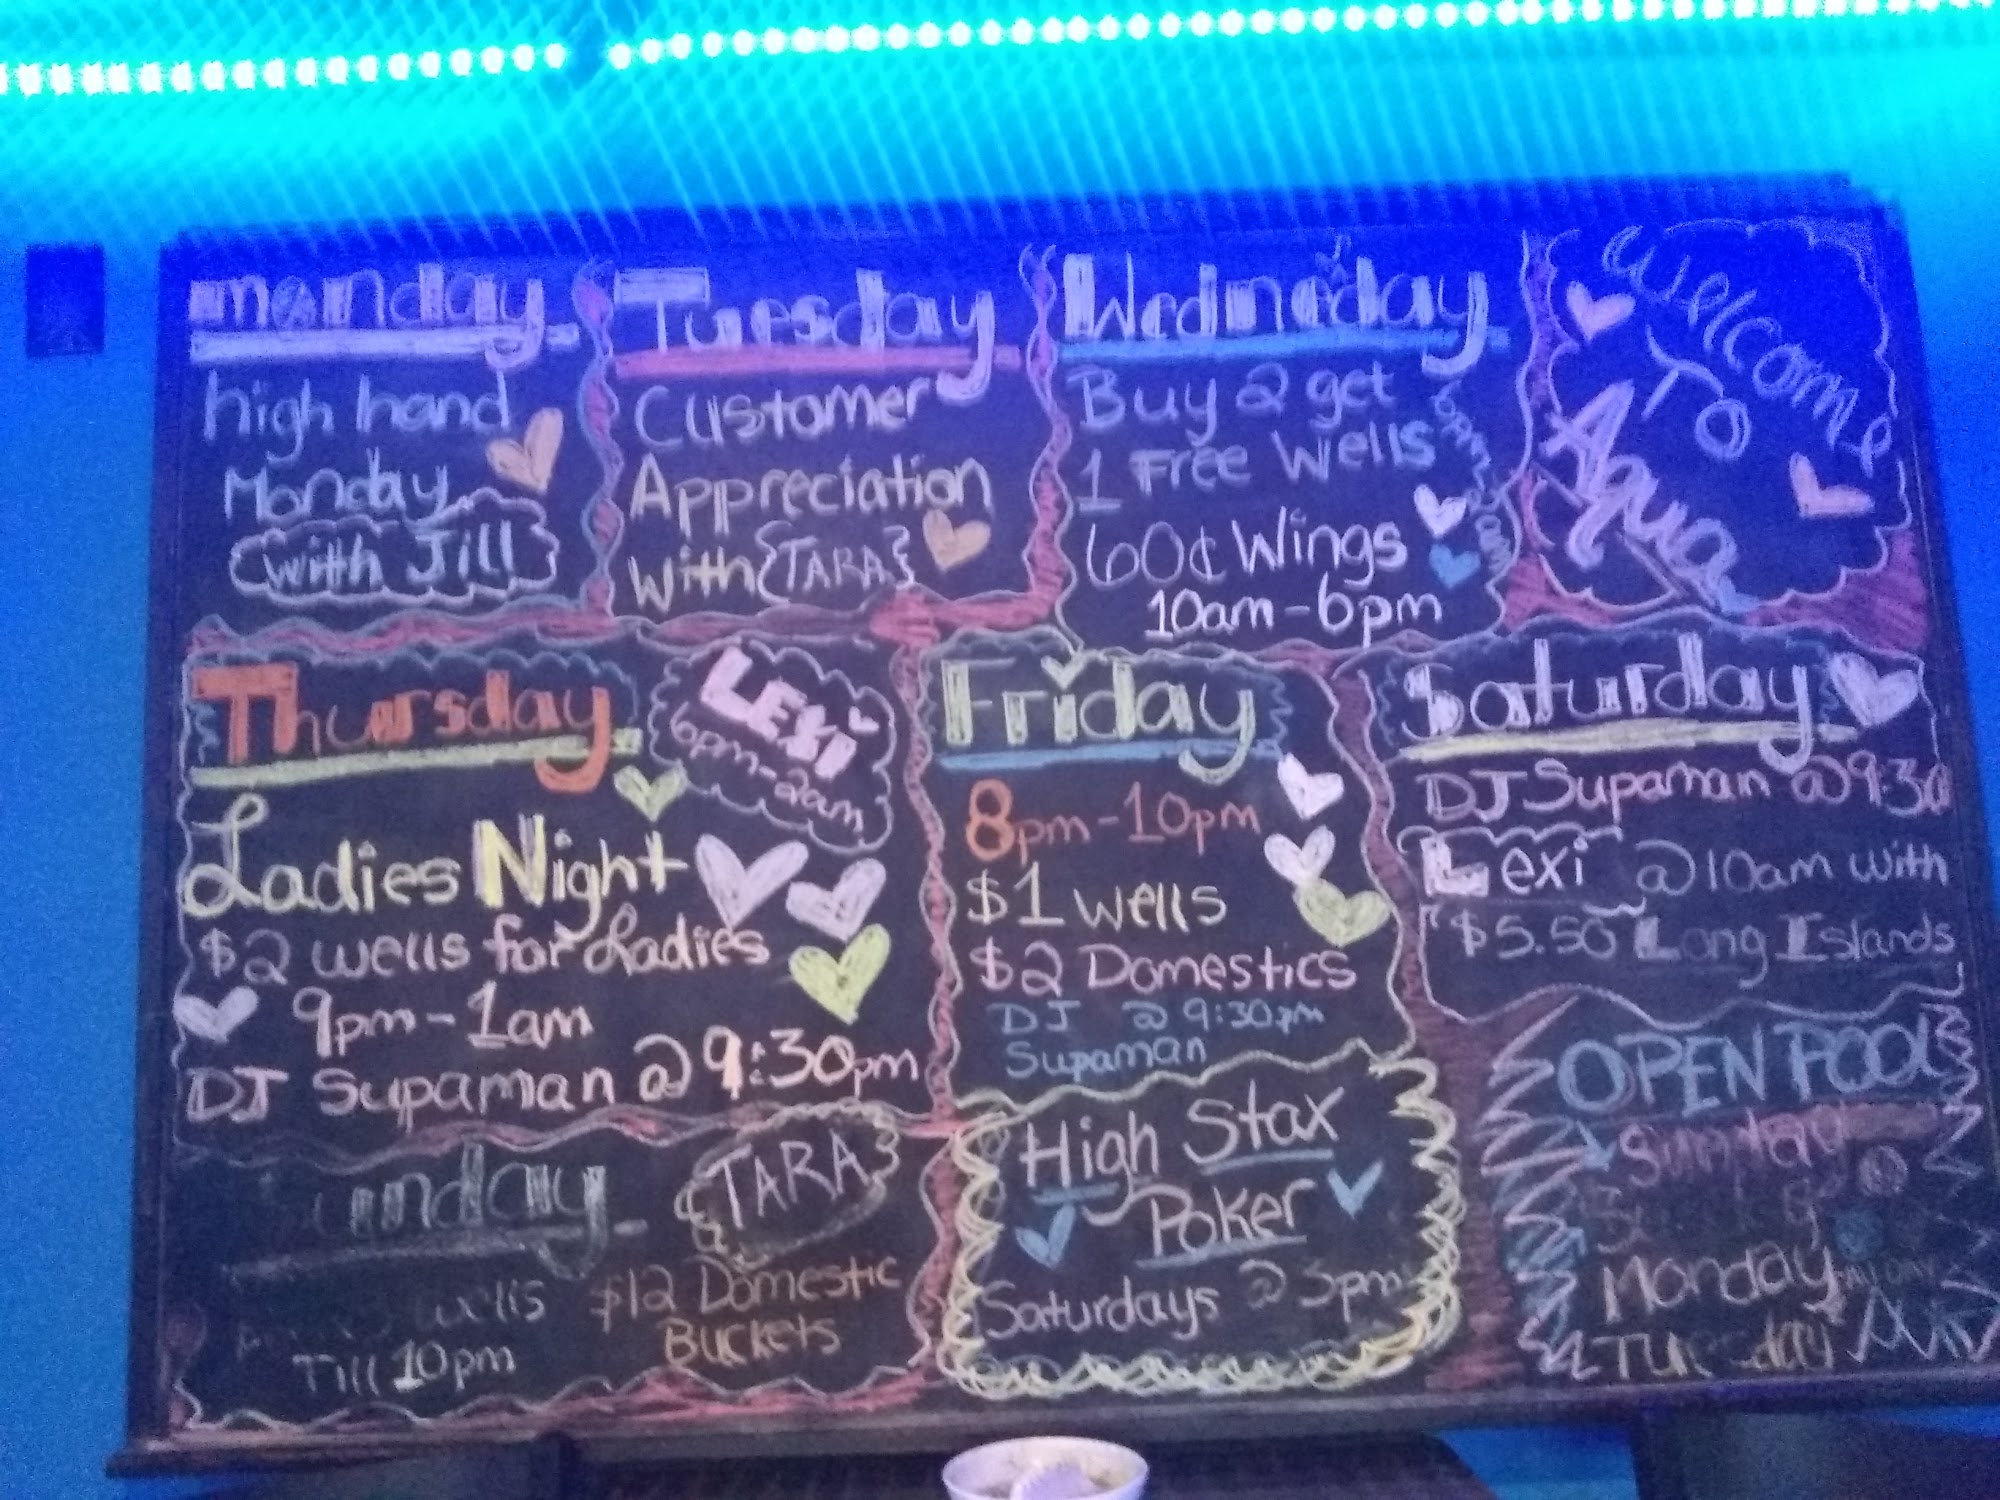 monday
high hand
Monday
with Jill
Tuesday
Customer
Appreciation
with {TARA}
Wednesday
Buy 2 get
1 Free Wells
60¢ Wings
10am-6pm
Welcome
To
Aqua
Thursday
LEXi
6pm-2am
Ladies Night
$2 wells for Ladies
9pm-1am
DJ Supaman @ 9:30pm
Friday
8pm-10pm
$1 wells
$2 Domestics
DJ @ 9:30pm
Supaman
Saturday
DJ Supaman @ 9:30
Lexi @ 10am with
$5.50 Long Islands
unday
TARA
wells
Till 10pm
$12 Domestic
Buckets
High Stax
Poker
Saturdays @ 3pm
OPEN POOL
Sunday
Monday
Tuesday